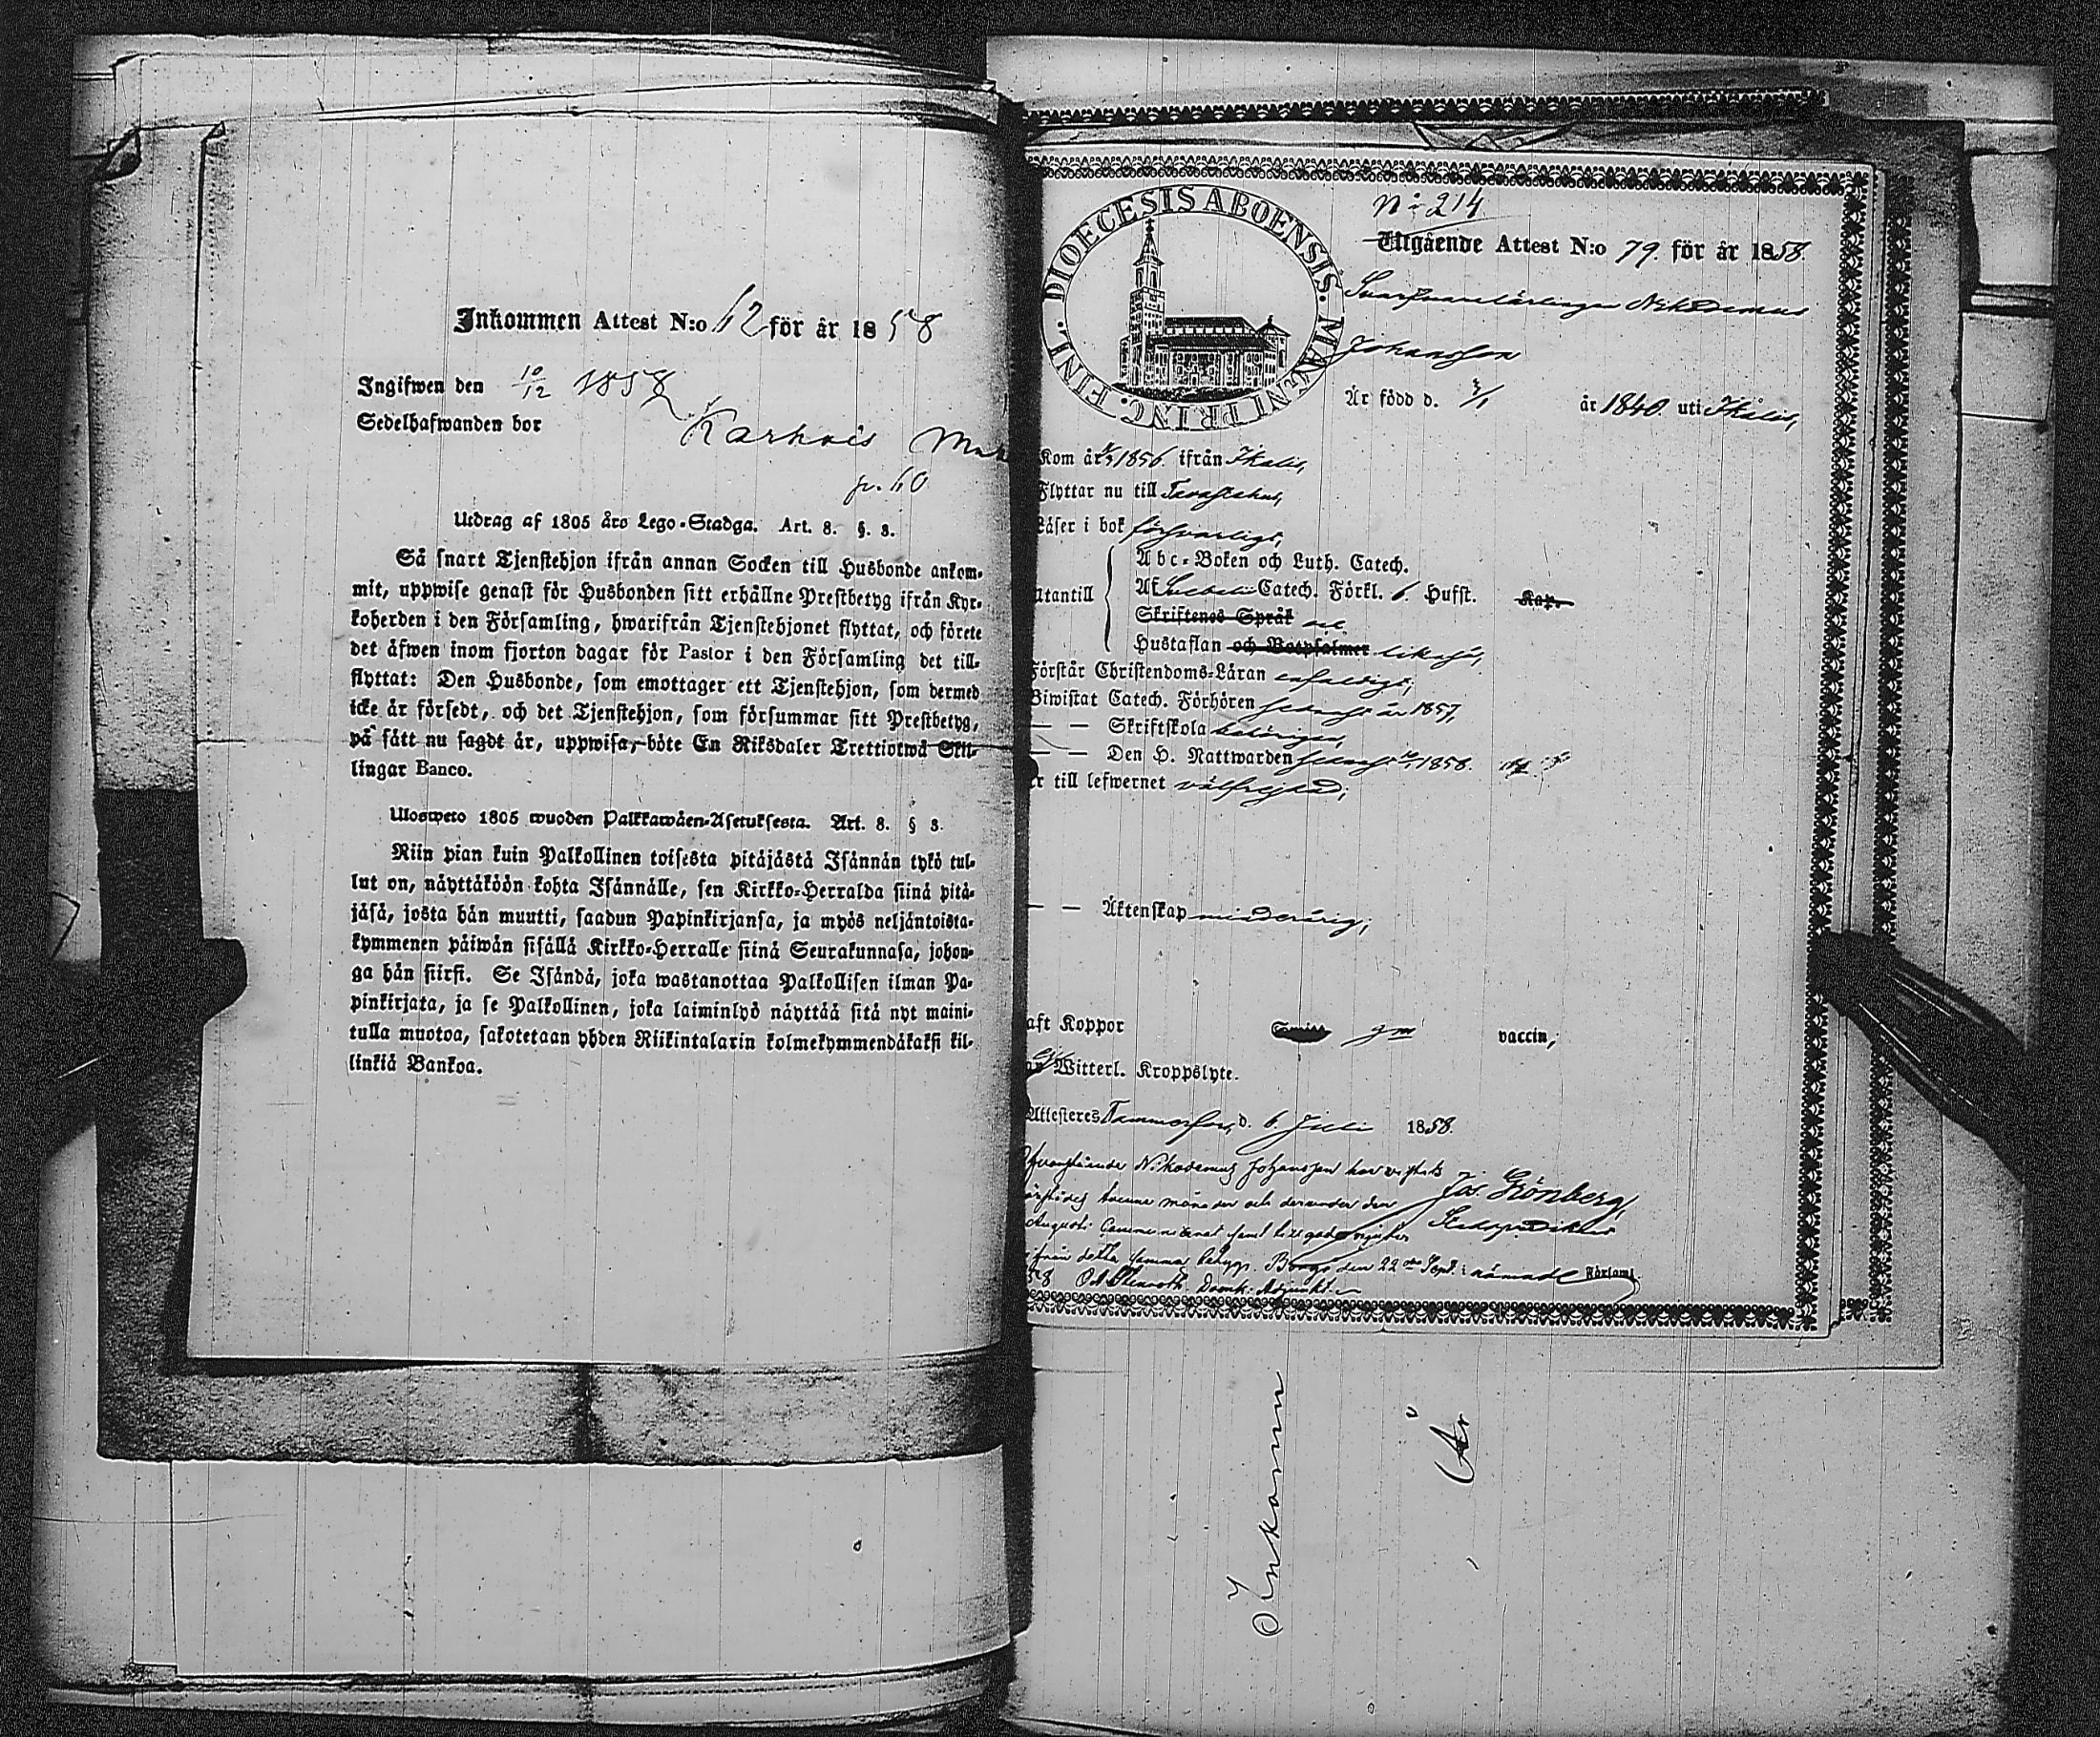 Inkommen Attest N:o 62 för år 1858
Ingifwen den 10/12 1858
Sedelhafwanden bor Karhois
p. 60
Utdrag af 1805 års Lego-Stadga. Art. 8. §. 8.
Så snart Tjenstehjon ifrån annan Socken till Husbonde ankom-
mit, uppwise genast för Husbonden sitt erhållne Prestbetyg ifrån Kyr-
koherden i den Församling, hwarifrån Tjenstehjonet flyttat, och förete
det äfwen inom fjorton dagar för Pastor i den Församling det till-
flyttat: Den Husbonde, som emottager ett Tjenstehjon, som dermed
icke är försedt, och det Tjenstehjon, som försummar sitt Prestbetyg,
på sätt nu sagdt är, uppwisa, böte En Riksdaler Trettiotwå Skil-
lingar Banco.
Ulosweto 1805 wuoden Palkkawäen-Asetuksesta. Art. 8. § 8.
Niin pian kuin Palkollinen toisesta pitäjästä Isännän tykö tul-
lut on, näyttäköön kohta Isännälle, sen Kirkko-Herralda siinä pitä-
jäsä, josta hän muutti, saadun Papinkirjansa, ja myös neljäntoista-
kymmenen päiwän sisällä Kirkko-Herralle siinä Seurakunnasa, johon-
ga hän siirsi. Se Isändä, joka wastanottaa Palkollisen ilman Pa-
pinkirjata, ja se Palkollinen, joka laiminlyö näyttää sitä nyt maini-
tulla muotoa, sakotetaan yhden Riikintalarin kolmekymmendäkaksi kil-
linkiä Bankoa.
DIOECESIS ABOENSIS. MAGNI PRINC. FINL.
N:o 214
Utgående Attest N:o 79. för år 1858.
Swarfwarelärlingen Nikodemus
Johansson
Är född d. år 1840. uti Ikalis,
Kom år 1856. ifrån Ikalis,
Flyttar nu till Tavastehus,
Läser i bok försvarligt,
utantill
Abc-Boken och Luth. Catech.
Af Catech. Förkl. 6. Hufst. Kap.
Skriftenes Språk
Hustaflan och Botpsalmer likaså,
Förstår Christendoms-Läran enfaldigt,
Biwistat Catech. Förhören senast år 1857,
— — Skriftskola behörigen,
— — Den H. Nattwarden senast 1858.
är till lefwernet välfrejdad;
— — Äktenskap minderårig;
haft Koppor gm vaccin,
Witterl. Kroppslyte.
Attesteres Tammerfors, d. 6. Juli 1858.
Ofvanstående Nikodemus Johansson har vistats
härstädes tvenne månader och derunder den
Jos. Grönberg,
Augusti Communicerat samt
ifrån detta samma betygs. Borgå den 22 Sept. i nämnde Församl.
58 Domk. Adjunkt.
Inkomn
År